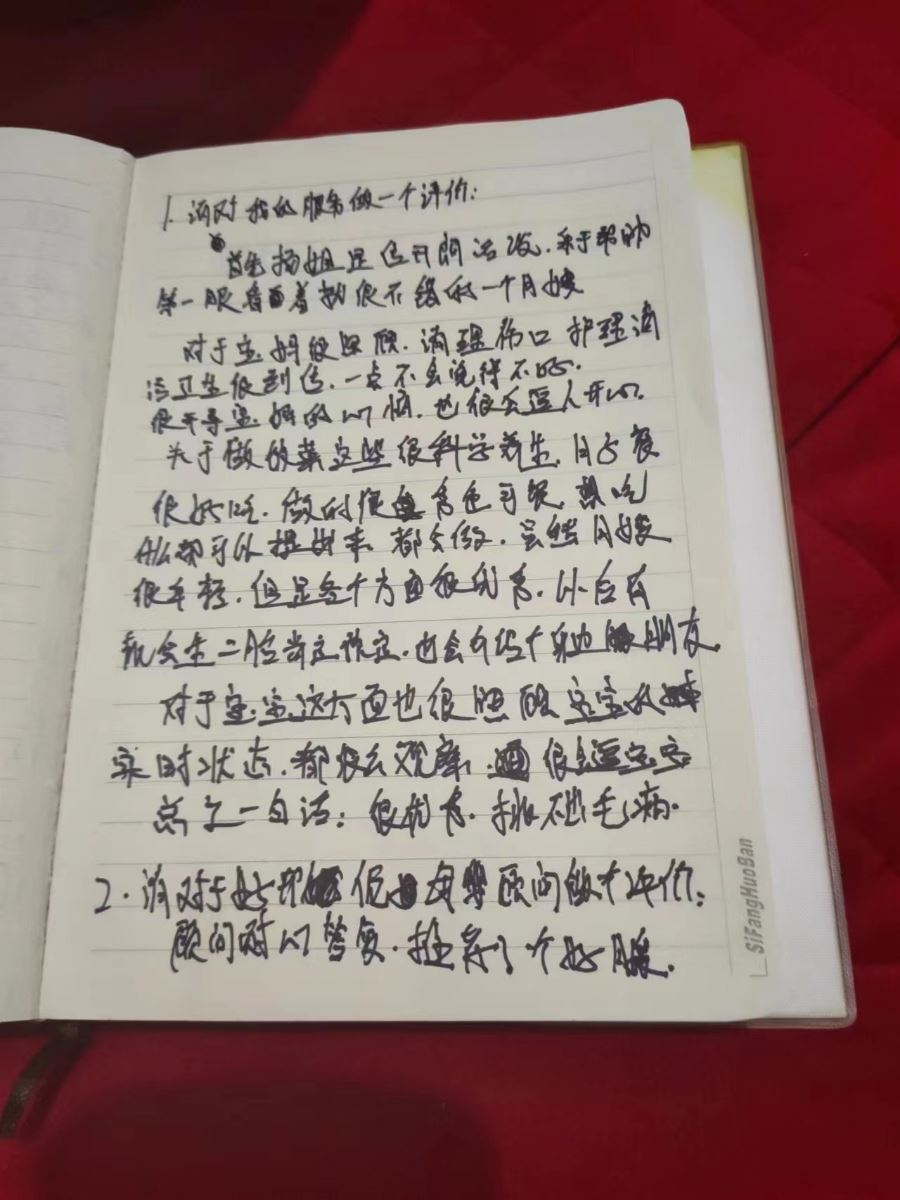 1. 请对我的服务做一个评价:
首先杨姐是位开朗活泼、乐于帮助
第一眼看着就很不错的一个月嫂
对于宝妈很照顾、清理伤口 护理清
洁卫生很到位、一点不会觉得不好。
很开导宝妈的心情、也很会逗人开心。
关于做的菜这些很科学养生、月子餐
很好吃、做的很 香色可餐 想吃
什么都可以提出来 都会做、虽然月嫂
很年轻、但是各个方面很优秀、以后有
机会生二胎肯定预定、也会介绍个身边 朋友
对于宝宝这方面也很照顾 宝宝的
实时状态、都很会观察、很会逗宝宝
总之一句话: 很优秀、挑不出毛病.
2. 请对于好 母婴顾问做个评价:
顾问耐心答复、推荐了个好月嫂.
SiFangHuoBan